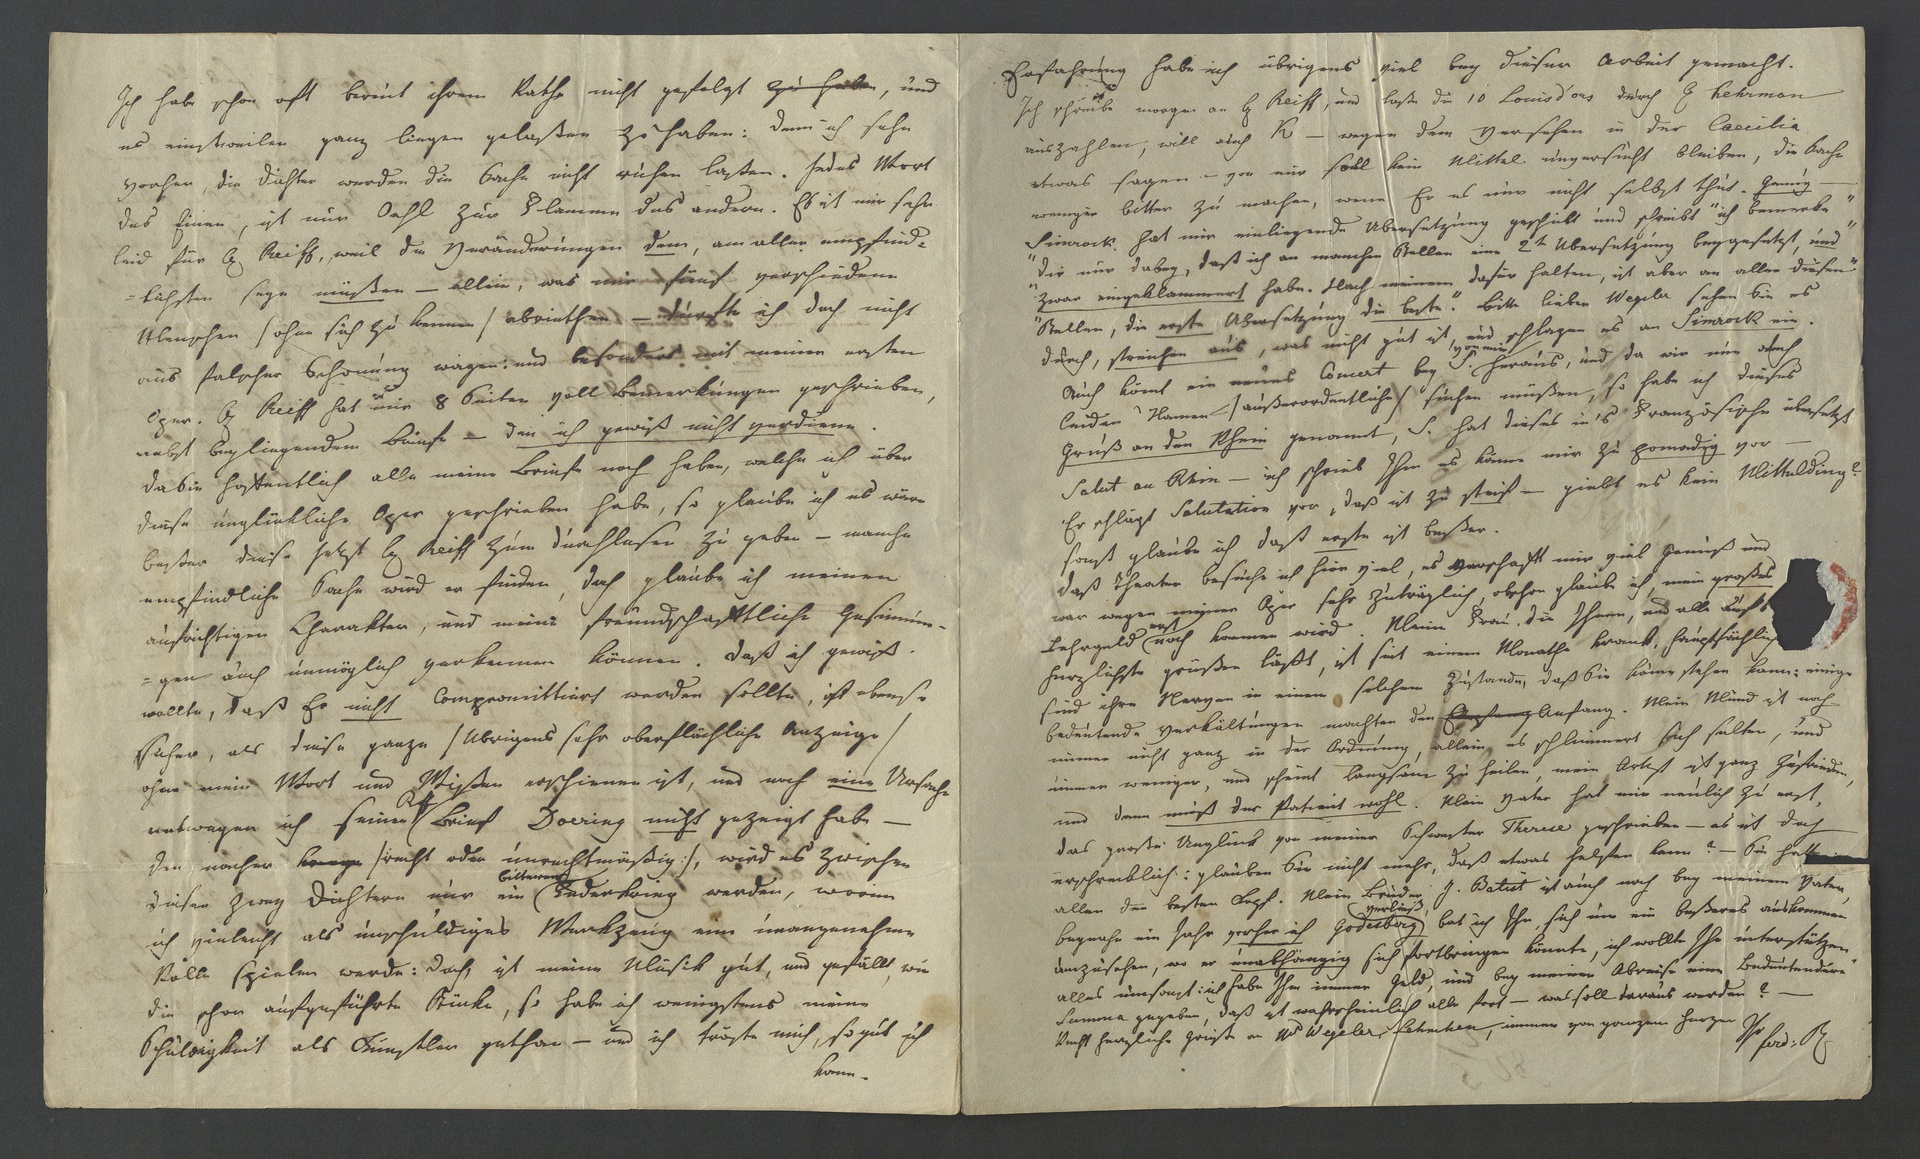 Ich habe schon oft bereut ihrem Rathe nicht gefolgt zu haben, und
es einstweilen ganz liegen gelaßen zu haben: denn ich sehe
vorher, die Dichter werden die Sache nicht ruhen laßen. Jedes Wort
des Einen, ist nur Oehl zur Flamme des andern. Es ist mir sehr
leid für H Reiff, weil die Veränderungen dem, am aller empfind-
-lichsten seyn müßen – allein, was mir fünf verschiedene
Menschen /ohne sich zu kennen/ abriethen – durfte ich doch nicht
aus falscher Schonung wagen: und besonders mit meiner ersten
Oper. H Reiff hat mir 8 Seiten voll Bemerkungen geschrieben,
nebst beyliegendem Briefe – den ich gewiß nicht verdiene.
Da Sie hoffentlich alle meine Briefe noch haben, welche ich über
diese unglückliche Oper geschrieben habe, so glaube ich es wäre
beßer diese jetzt H Reiff zum durchlesen zu geben – manche
empfindliche Sache wird er finden, doch glaube ich meinen
aufrichtigen Charakter, und meine freundschafttliche Gesinnun-
-gen auch unmöglich verkennen können. Daß ich gewiß
wollte, daß Er nicht compromittiert werden sollte, ist ebenso
sicher, als diese ganze /übrigens sehr oberflächliche Anzeige/
ohne mein Wort und Wißen erschienen ist, und noch eine Ursache
weswegen ich seinen Brief Doering nicht gezeigt habe –
den nacher /recht oder unrechtmäßig:/, wird es zwischen
diesen zwey Dichtern nur ein bitterer Federkrieg werden, worin
ich vieleicht als unschuldiges Werkzeug eine unangenehme
Rolle spielen werde: doch, ist meine Musick gut, und gefällt, wie
die schon aufgeführte Stücke, so habe ich wenigstens meine
Schuldigkeit als Künstler gethan – und ich tröste mich, so gut ich
kann.
Erfahrung habe ich übrigens viel bey dieser Arbeit gemacht.
Ich schreibe morgen an H Reiff, und laße die 10 Louisd'ors durch H Lehrman
auszahlen, will auch R – wegen dem Versehen in der Caecilia
etwas sagen – von mir soll kein Mittel unversucht bleiben, die Sache
weniger bitter zu machen, wenn Er es nur nicht selbst thut. Genug –
Simrock hat mir einliegende Übersetzung geschickt und schreibt "ich bemerke"
"dir nur dabey, daß ich an manchen Stellen eine 2te Übersetzung beygesetzt, und"
"zwar eingeklammert habe. Nach meinem dafür halten, ist aber an allen diesen"
"Stellen, die erste Übersetzung die beste". Bitte lieber Wegeler sehen Sie es
durch, streichen aus, was nicht gut ist, und schlagen es an Simrock ein.
Auch kömt ein neues Concert von mir bey S. heraus, und da wir nun doch
leider Namen /außerordentliche/ suchen müßen, so habe ich dieses
Gruß an den Rhein genannt, S. hat dieses in's Französische übersetzt
Salut au Rhin – ich schrieb Ihm es käme mir zu pomadig vor –
Er schlägt Salutation vor, daß ist zu steif – giebt es kein Mittelding?
sonst glaube ich daß erste ist beßer.
Daß Theater besuche ich hier viel, es verschafft mir viel Genuß und
war wegen meiner Oper sehr zuträglich, obschon glaube ich, mein großes
Lehrgeld erst noch kommen wird. Meine Frau, die Ihnen, und alle auf's
herzlichste grüßen läßt, ist seit einem Monathe kranck, hauptsächlich
sind ihre Nerven in einem solchen Zustande, daß Sie kaum stehen kann: einige
bedeutende Verkältungen machten den Anfang. Mein Mund ist noch
immer nicht ganz in der Ordnung, allein, es schlimmert sich selten, und
immer weniger, und scheint langsam zu heilen, mein Artzt ist ganz zufrieden,
und dann muß der Patient wohl. Mein Vater hat mir neulich zu erst,
das große Unglück von meiner Schwester Therese geschrieben – es ist doch
erschrecklich: glauben Sie nicht mehr, daß etwas helfen kann? – Sie hatte
allen den besten Kopf. Mein Bruder J. Batist ist auch noch bey meinem Vater,
beynahe ein Jahr vorher ich Godesberg verließ, bat ich Ihn, sich um ein beßeres auskommen
umzusehen, wo er unabhängig sich fortbringen könnte, ich wollte Ihn unterstützen
alles umsonst: ich habe Ihm immer Geld, und bey meiner Abreise eine bedeutendere
Summa gegeben, daß ist wahrscheinlich alle fort – was soll daraus werden? –
Recht herzliche Grüße an Mde Wegeler, Lehnchen, immer von ganzem Herzen
Ihr
Ferd: R